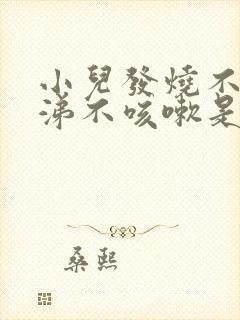 小兒發燒不
涕不咳嗽是
桑熙